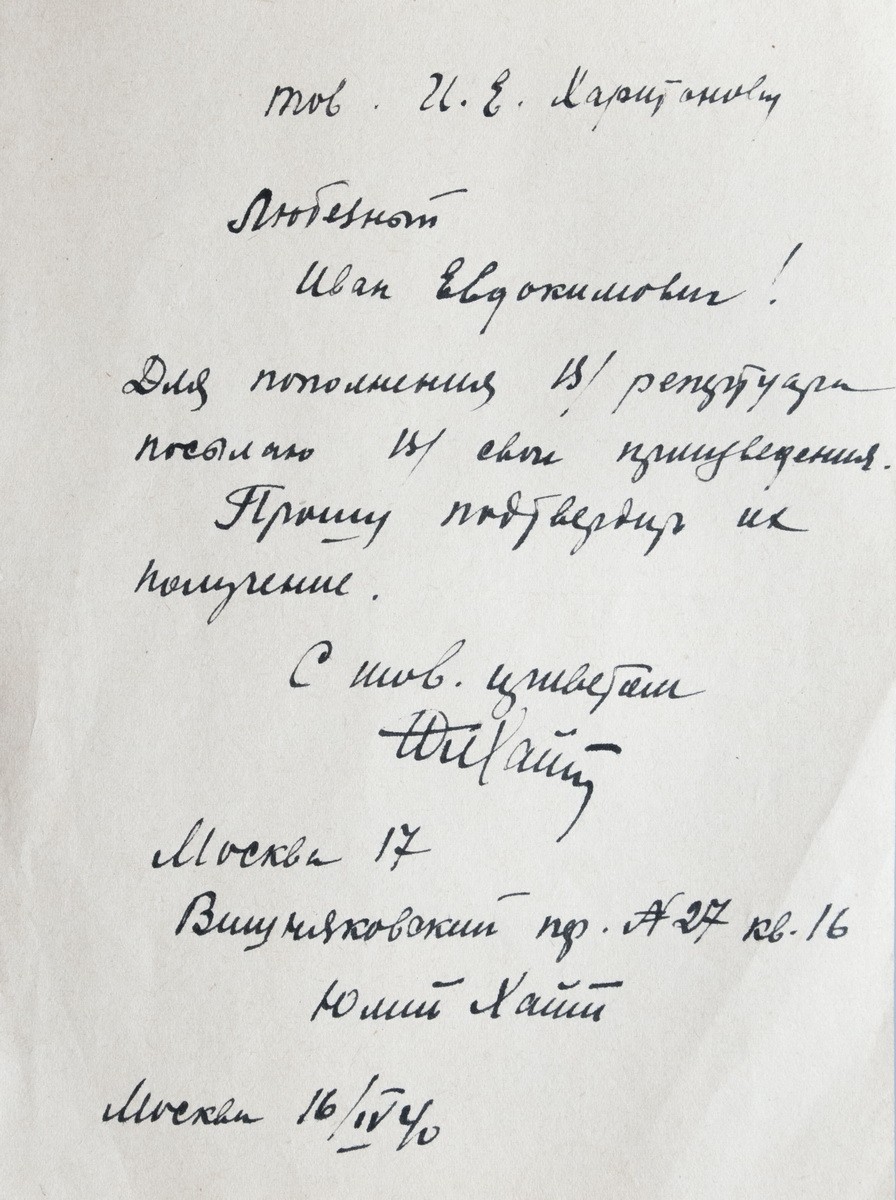 тов. И. Е. Харитонову
Любезный
Иван Евдокимович!
Для пополнения В/ репертуара
посылаю В/ свои произведения.
Прошу подтвердить их
получение.
С тов. приветом
ЮлХайт
Москва 17
Вишняковский пр. № 27 кв. 16
Юлий Хайт
Москва 16/IV 40